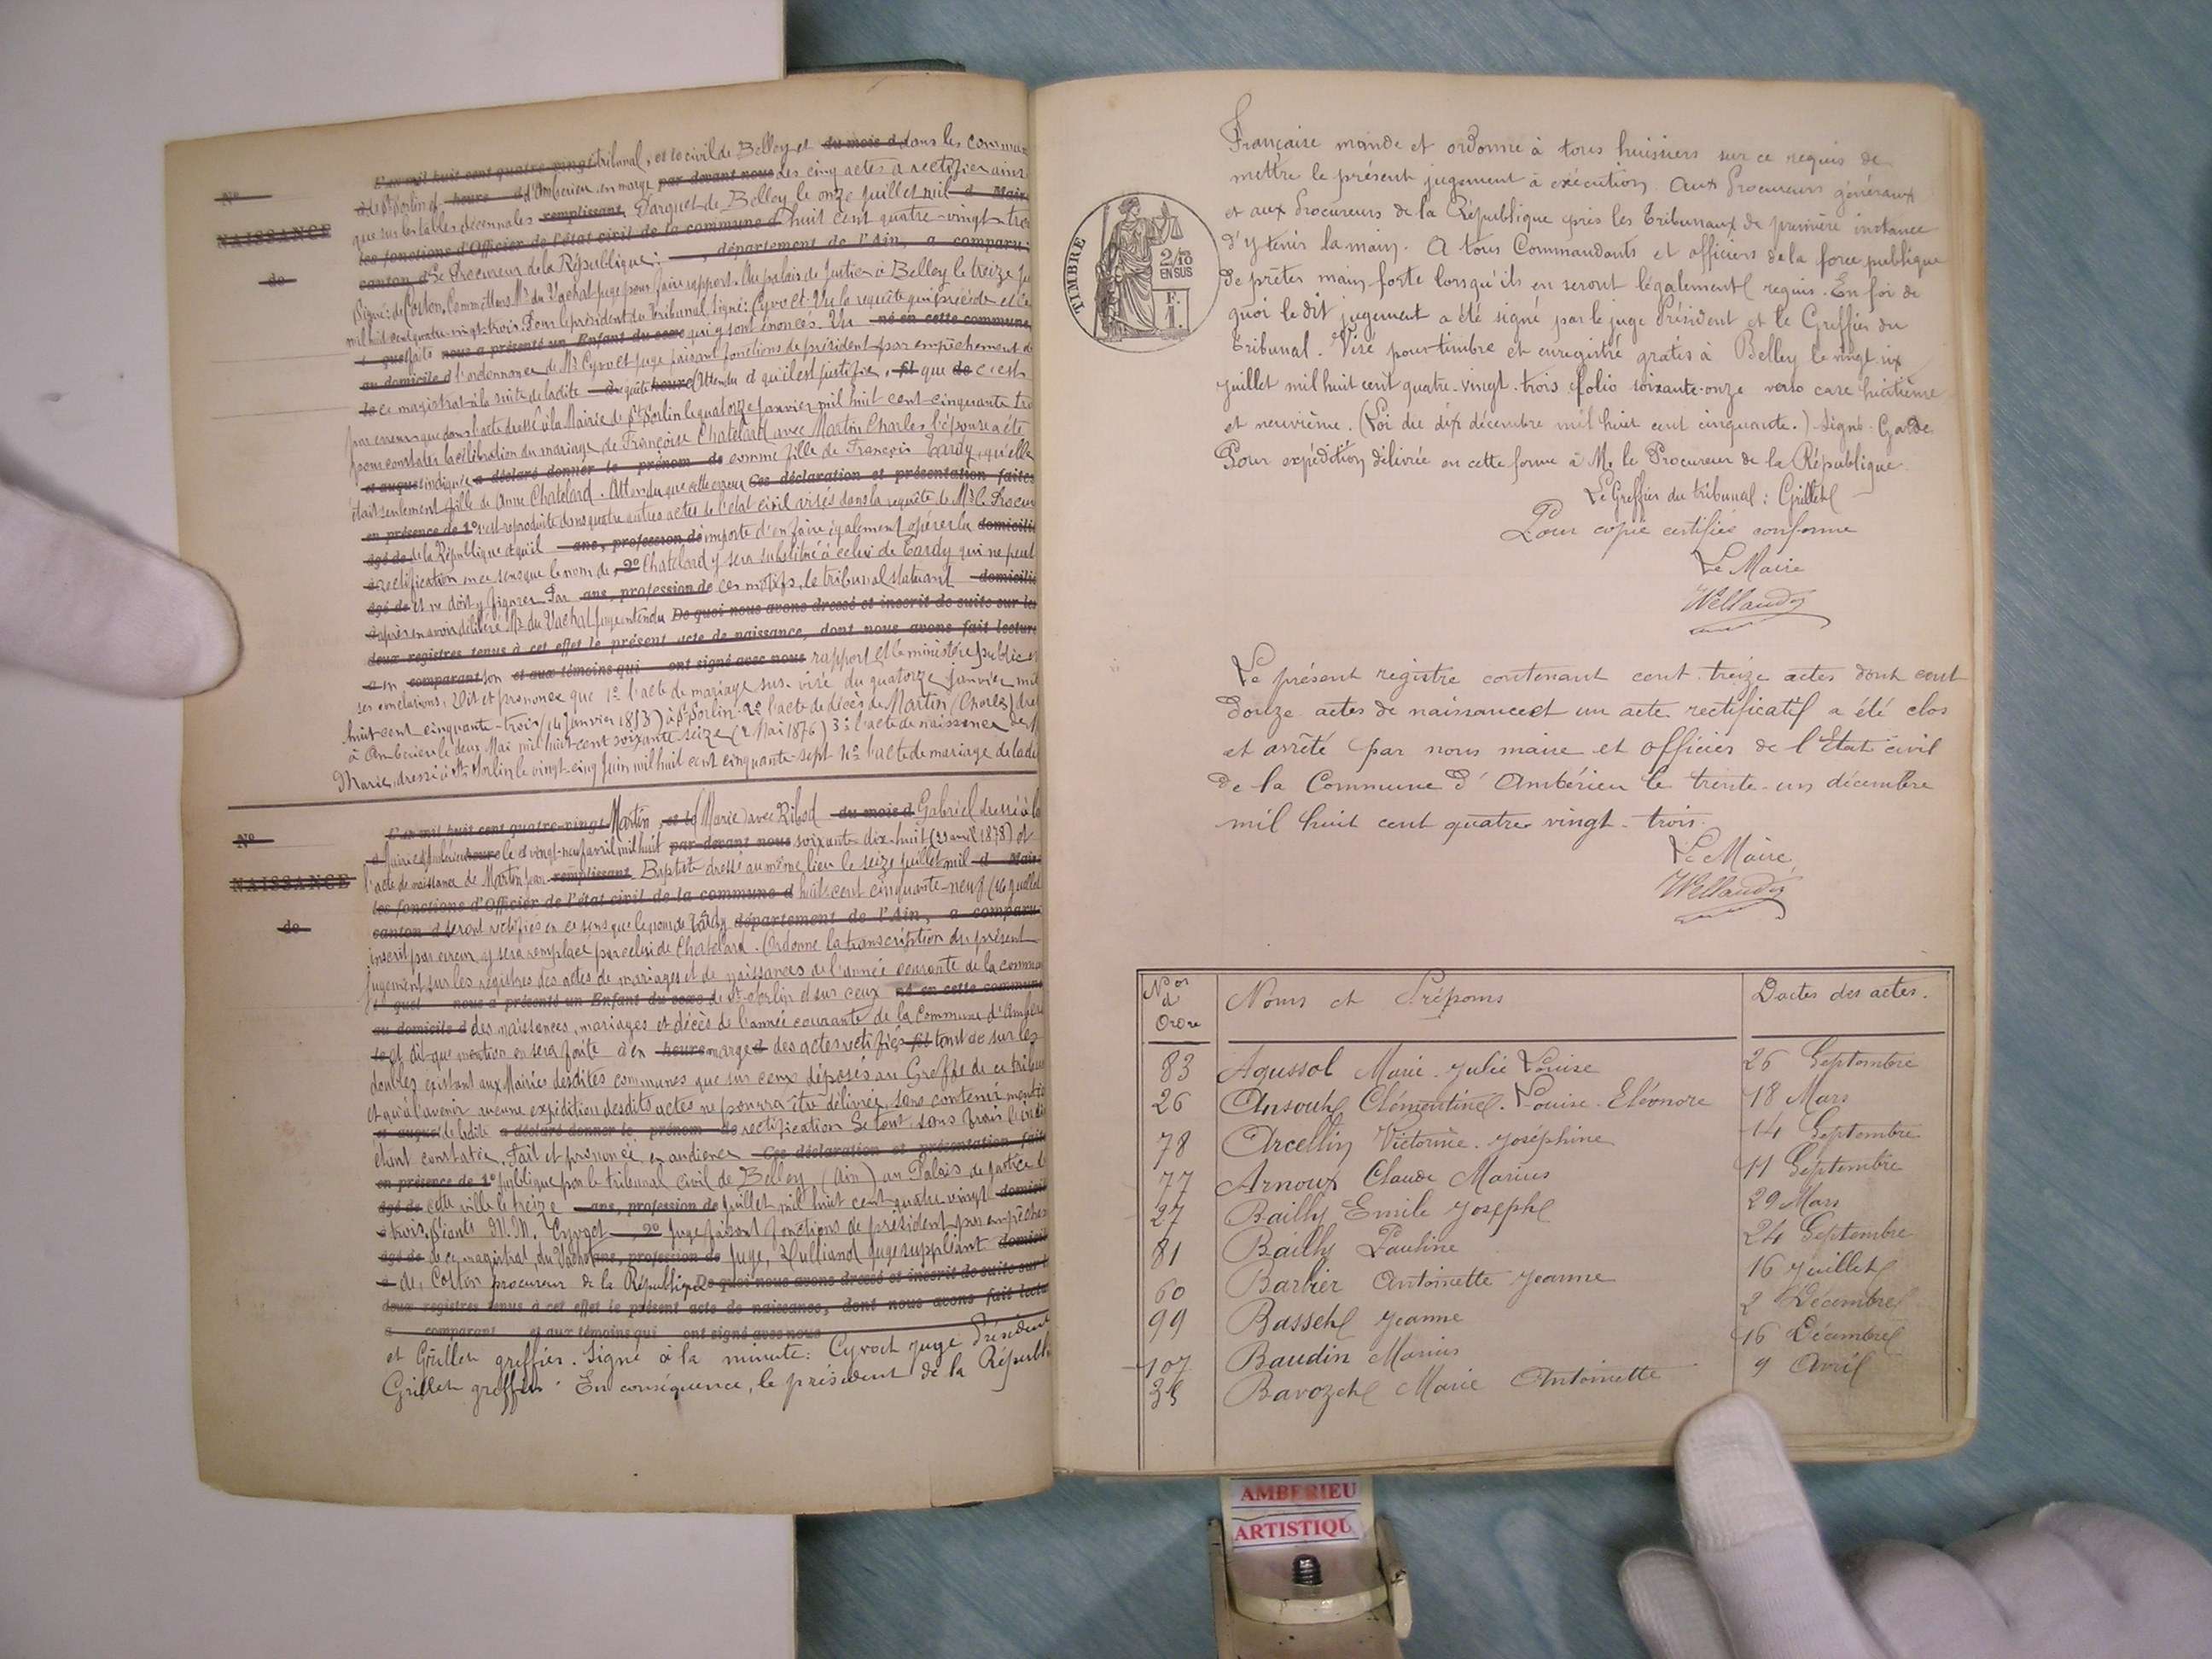 L'an mil huit cent quatre-vingt tribunal, et le civil de Belley et du mois d dans les commun
Nº
à de St Sorlin et heure d d'Ambérieu en marge par devant nous des cinq actes à rectifier ainsi
que sur les tables décennales remplissant Parquet de Belley le onze juillet mil d Maire
NAISSANCE
les fonctions d'Officier de l'état civil de la commune d huit cent quatre-vingt-trois
canton d Le Procureur de la République: , département de l'Ain, a comparu
de
Signé: de Coston. Commettons Mr du Vachat juge pour faire rapport. Au palais de Justice à Belley le treize ju
mil huit cent quatre-vingt-trois. Pour le président du Tribunal. Signé: Cyvoct. Vu la requête qui précède et les
quel faits nous a présenté un Enfant du sexe qui y sont énoncés. Vu né en cette commune
au domicile d l'ordonnance de Mr Cyvoct juge faisant fonctions de président par empêchement d
le ce magistrat à la suite de ladite requête heure Attendu d qu'il est justifié, fil que de c'est
par erreur que dans l'acte dressé à la Mairie de St Sorlin le quatorze janvier mil huit cent cinquante tro
pour constater la célébration du mariage de Françoise Chatelard avec Martin Charles l'épouse a été
et auquel indiquée a déclaré donner le prénom de comme fille de François Tardy, qu'elle
était seulement fille de Anne Chatelard. Attendu que cette erreur Ces déclaration et présentation faites
en présence de 1º s'est reproduite dans quatre autres actes de l'état civil visés dans la requête de Mr le Procur
âgé de de la République et qu'il ans, profession de importe d'en faire également opérer la domicilié
à rectification en ce sens que le nom de , 2º Chatelard y sera substitué à celui de Tardy qui ne peut
âgé de et ne doit y figurer. Par ans, profession de ces motifs, le tribunal statuant domicilié
à après en avoir délibéré Mr du Vachat juge entendu De quoi nous avons dressé et inscrit de suite sur les
deux registres tenus à cet effet le présent acte de naissance, dont nous avons fait lecture
a en comparant son et aux témoins qui ont signé avec nous rapport et le ministère public en
ses conclusions; Dit et prononce que 1º l'acte de mariage sus-visé du quatorze janvier mil
huit cent cinquante-trois (14 janvier 1853) à St Sorlin 2º l'acte de décès de Martin (Charles) dre
à Ambérieu le deux Mai mil huit cent soixante seize (2 Mai 1876) 3º l'acte de naissance de M
Marie, dressé à St Sorlin le vingt-cinq Juin mil huit cent cinquante-sept 4º l'acte de mariage de lad
L'an mil huit cent quatre-vingt Martin , et le (Marie) avec Ribod du mois d Gabriel dressé à la
Nº
à Mairie d'Ambérieu heure le d vingt-neuf avril mil huit par devant nous soixante-dix-huit (29 avril 1878) et
l'acte de naissance de Martin Jean remplissant Baptiste dressé au même lieu le seize juillet mil d Maire
NAISSANCE
les fonctions d'Officier de l'état civil de la commune d huit cent cinquante-neuf (16 juillet
canton d seront rectifiés en ce sens que le nom de Tardy département de l'Ain, a comparu
de
inscrit par erreur y sera remplacé par celui de Chatelard. Ordonne la transcription du présent
jugement sur les registres des actes de mariages et de naissances de l'année courante de la commun
quel nous a présenté un Enfant du sexe de St Sorlin et sur ceux né en cette commune
au domicile d des naissances, mariages et décès de l'année courante de la Commune d'Ambéri
le et dit que mention en sera faite à en heure marge d des actes rectifiés fil tant de sur les
doubles existant aux Mairies desdites communes que sur ceux déposés au Greffe de ce tribun
et qu'à l'avenir aucune expédition desdits actes ne pourra être délivrée, sans contenir mentio
et auquel de ladite a déclaré donner le prénom de rectification Le tout, sans frais l'indi
étant constatée. Fait et prononcé en audience Ces déclaration et présentation faite
en présence de 1º publique par le tribunal civil de Belley (Ain) au Palais de justice d
âgé de cette ville le treize ans, profession de juillet mil huit cent quatre vingt domicil
à trois, Séants M. M. Cyvoct , 2º Juge faisant fonctions de président par empêchem
âgé de de ce magistrat, du Vachat ans, profession de Juge, Hulliand juge suppléant domicil
à de, Coston procureur de la République De quoi nous avons dressé et inscrit de suite sur l
deux registres tenus à cet effet le présent acte de naissance, dont nous avons fait lectu
a comparant et aux témoins qui ont signé avec nous
et Grillet greffier. Signé à la minute: Cyvoct juge Président
Grillet greffier. En conséquence, le président de la Républi
Française mande et ordonne à tous huissiers sur ce requis de
mettre le présent jugement à exécution. Aux Procureurs généraux
et aux Procureurs de la République près les Tribunaux de première instance
d'y tenir la main. A tous Commandants et officiers de la force publique
de prêter main-forte lorsqu'ils en seront légalement requis. En foi de
quoi le dit jugement a été signé par le juge Président et le Greffier du
Tribunal. Visé pour timbre et enregistré gratis à Belley le vingt-six
juillet mil huit cent quatre-vingt-trois folio soixante-onze verso case huitième
et neuvième. (Loi du dix décembre mil huit cent cinquante.) Signé: Garde
Pour expédition délivrée en cette forme à M. le Procureur de la République.
Le Greffier du tribunal: Grillet
Pour copie certifiée conforme
Le Maire
TIMBRE
2/10
EN SUS
F.
1.
Le présent registre contenant cent-treize actes dont cent
douze actes de naissance et un acte rectificatif a été clos
et arrêté par nous maire et officier de l'Etat civil
de la Commune d'Ambérieu le trente-un décembre
mil huit cent quatre vingt-trois.
Le Maire,
Nos d'Ordre Noms et Prénoms Dates des actes.
83 Agussol Marie-Julie Louise 26 Septembre
26 Ansout Clémentine-Louise-Eléonore 18 Mars
78 Arcellin Victorine-Joséphine 14 Septembre
77 Arnoux Claude Marius 11 Septembre
27 Bailly Emile Joseph 29 Mars
81 Bailly Pauline 24 Septembre
60 Barbier Antoinette Jeanne 16 Juillet
99 Basset Jeanne 2 Décembre
107 Baudin Marius 16 Décembre
35 Bavozet Marie Antoinette 9 Avril
AMBERIEU
ARTISTIQU